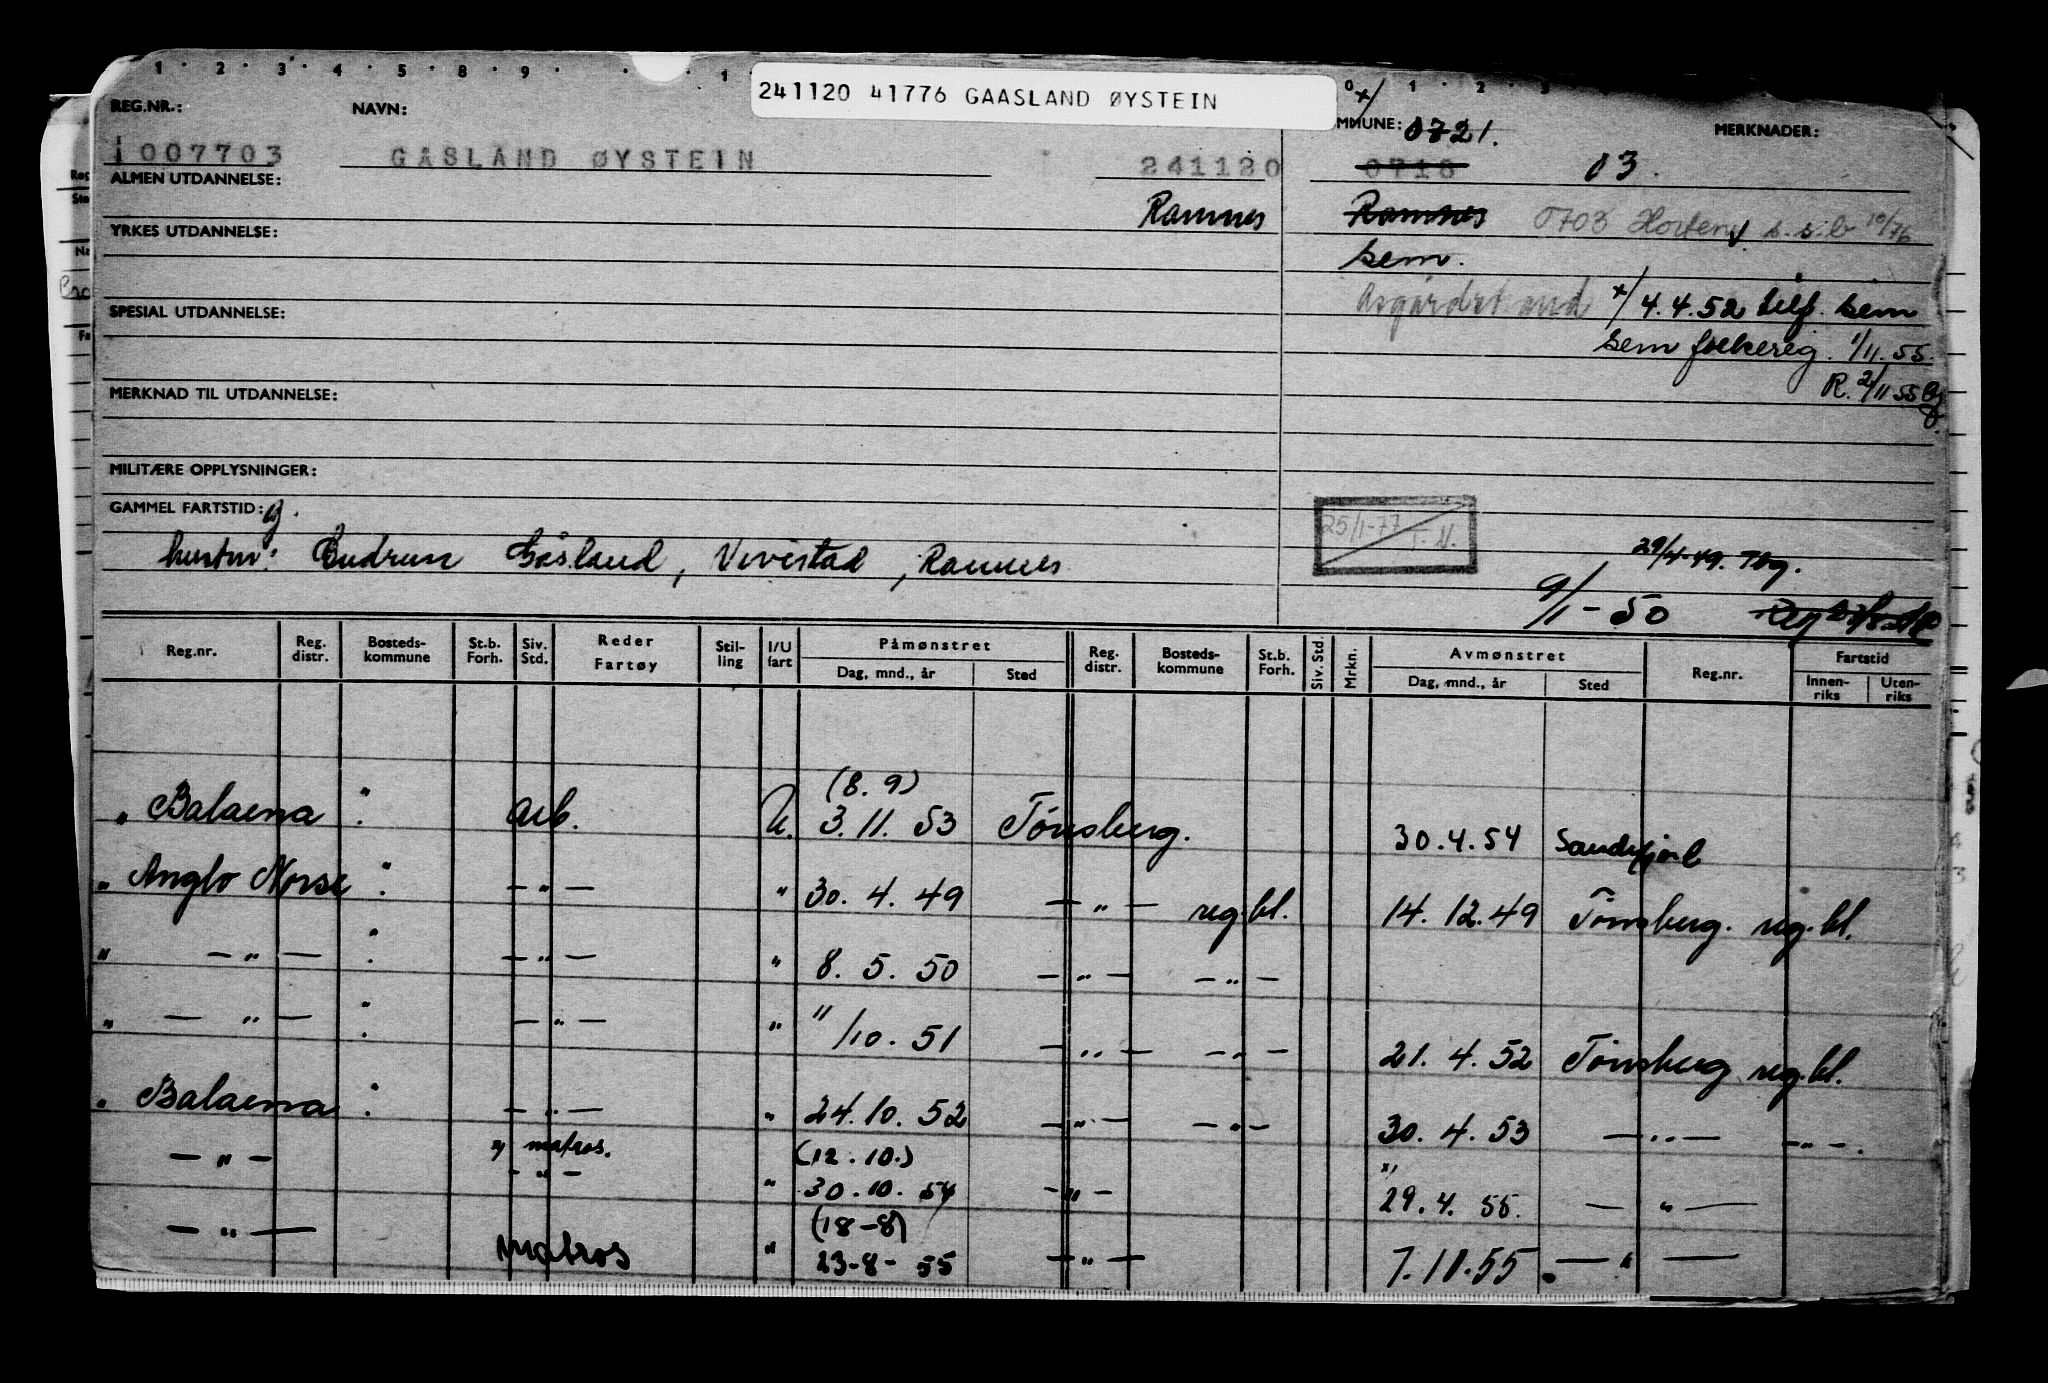 241120 41776 GAASLAND ØYSTEIN
REG.NR.: NAVN: MMUNE: 0721. MERKNADER:
1007703 GASLAND ØYSTEIN 241120 0718 03.
ALMEN UTDANNELSE: Ramnes Ramnes 0703 Horten s.s.b 10/76
YRKES UTDANNELSE: Sem.
x/ 4.4.52 Sem
SPESIAL UTDANNELSE:
Sem folkereg. 1/11.55.
R. 2/11 55
MERKNAD TIL UTDANNELSE:
MILITÆRE OPPLYSNINGER:
GAMMEL FARTSTID:
25/1-77 T.N.
hustru: Gudrun Gåsland, Vivestad, Ramnes
29/4-49. Tbg.
9/1-50
Reg.nr. Reg. distr. Bosteds-kommune St.b. Forh. Siv. Std. Reder Fartøy Stil-ling I/U fart Påmønstret Dag, mnd., år Sted Reg. distr. Bosteds-kommune St.b. Forh. Siv. Std Mrkn. Avmønstret Dag, mnd., år Sted Reg.nr. Fartstid Innen-riks Uten-riks
(8.9)
" Balaena " arb. U. 3.11.53 Tönsberg. 30.4.54 Sandefjord
" Anglo Norse " — " — " 30.4.49 — " — reg.bl. 14.12.49 Tönsberg. reg.bl.
" — " — " — " — " 8.5.50 — " — — " —
" — " — " — " — " "/10.51 — " — — " — 21.4.52 Tönsberg reg.bl.
" Balaena " — " — " 24.10.52 — " — — " — 30.4.53 — " — — " —.
— " — matros. (12.10.)
— " — " 30.10.54 — " — 29.4.55. — " —
— " — (18-8)
matros " 23-8-55 — " — 7.11.55 — " —